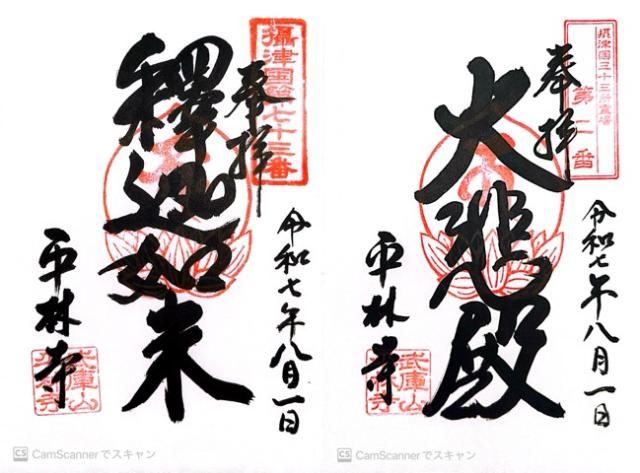 攝津国第七十三番
奉拝
釋迦如来
令和七年八月一日
平林寺
武庫山
平林寺
CS CamScannerでスキャン
摂津国三十三所霊場
第二番
奉拝
大悲殿
令和七年八月一日
平林寺
武庫山
平林寺
CS CamScannerでスキャン